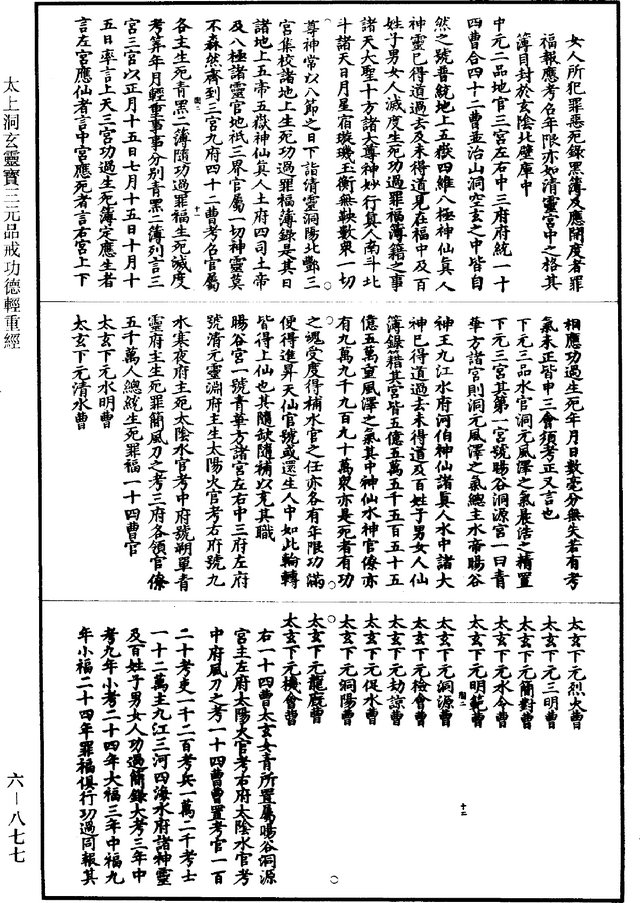 太上洞玄靈寶三元品戒功德輕重經
女人所犯罪惡死錄黑簿及應開度者罪
福報應考名年限亦如清靈宮中之格其
簿目封於玄陰北壁庫中
中元二品地官三宮左右中三府府統一十
四曹合四十二曹並治山洞空玄之中皆自
然之號普統地上五嶽四維八極神仙真人
神靈已得道過去及未得道見在福中及百
姓子男女人滅度生死功過罪福簿籍之事
諸天大聖十方諸大尊神妙行真人南斗北
斗諸天日月星宿璇璣玉衡無鞅數眾一切
尊神常以八節之日下詣清靈洞陽北酆三
宮集校諸地上生死功過罪福簿錄是其日
諸地上五帝五嶽神仙真人土府四司土帝
及八極諸靈官地祇三界官屬一切神靈莫
不森然齊到三宮九府四十二曹考名官屬
各主生死青黑二簿隨功過罪福生死滅度
考筭年月輕重事事分別青黑二簿列言三
宮三宮以正月十五日七月十五日十月十
五日率言上天三宮功過生死簿定應生者
言左宮應仙者言中宮應死者言右宮上下
相應功過生死年月日數毫分無失若有考
氣未正皆申三會須考正又言也
下元三品水官洞元風澤之氣晨浩之精置
下元三宮其第一宮號暘谷洞源宮一曰青
華方諸宮則洞元風澤之氣總主水帝暘谷
神王九江水府河伯神仙諸真人水中諸大
神已得道過去未得道及百姓子男女人仙
簿錄籍其宮皆五億五萬五千五百五十五
億五萬重風澤之氣其中神仙水神官僚亦
有九萬九千九百九十萬眾亦是死者有功
之魂受度得補水官之任亦各有年限功滿
便得進昇天仙官號或還生人中如此輪轉
皆得上仙也其隨缺隨補以充其職
暘谷宮一號青華方諸宮左右中三府左府
號清元靈淵府主生太陽火官考右府號九
水集夜府主死太陰水官考中府號朔單青
靈府主生死罪簡風刀之考三府各領官僚
五千萬人總統生死罪福一十四曹官
太玄下元水明曹
太玄下元清水曹
太玄下元烈火曹
太玄下元三明曹
太玄下元簡對曹
太玄下元水令曹
太玄下元明範曹
太玄下元洞源曹
太玄下元檢會曹
太玄下元劫諒曹
太玄下元促水曹
太玄下元洞陽曹
太玄下元龍廄曹
太玄下元機會曹
右一十四曹太玄女青所置屬暘谷洞源
宮主左府太陽火官考右府太陰水官考
中府風刀之考一十四曹曹置考官一百
二十考吏一千二百考兵一萬二千考士
一十二萬主九江三河四海水府諸神靈
及百姓子男女人功過簡錄大考三年中
考九年小考二十四年大福三年中福九
年小福二十四年罪福俱行功過同報其
十二
六－八七七